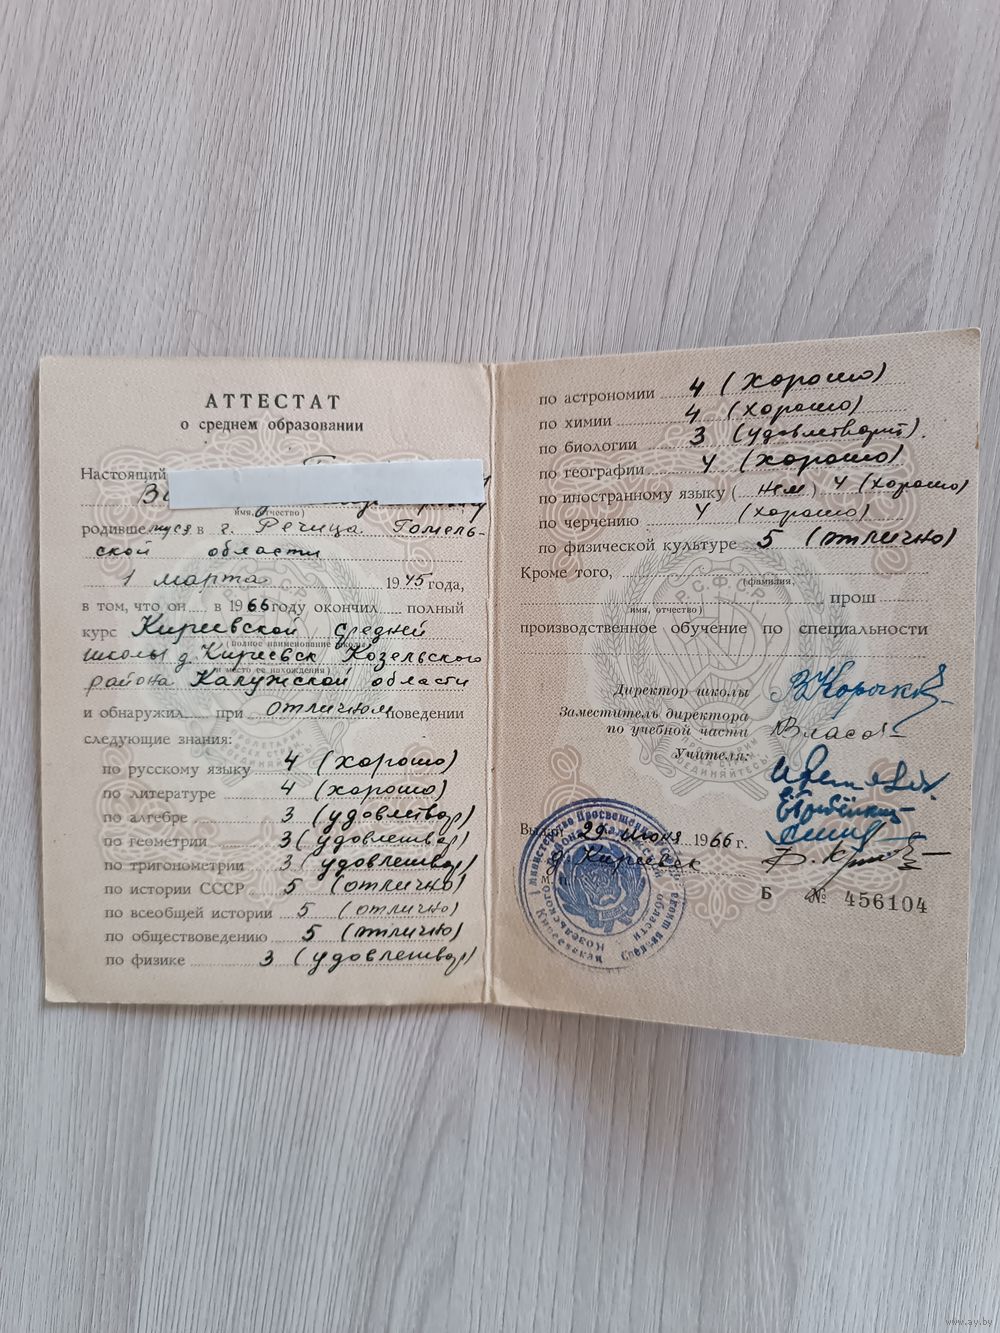 АТТЕСТАТ
о среднем образовании
Настоящий
имя, отчество)
родившемуся в г. Речица Гомель-
ской области
1 марта 1945 года,
в том, что он в 1966 году окончил полный
курс Киреевской средней
(полное наименование школы
школы д. Киреевск Козельского
и место ее нахождения)
района Калужской области
и обнаружил при отличном поведении
следующие знания:
по русскому языку 4 (хорошо)
по литературе 4 (хорошо)
по алгебре 3 (удовлетвор)
по геометрии 3 (удовлетвор)
по тригонометрии 3 (удовлетвор)
по истории СССР 5 (отлично)
по всеобщей истории 5 (отлично)
по обществоведению 5 (отлично)
по физике 3 (удовлетвор)
по астрономии 4 (хорошо)
по химии 4 (хорошо)
по биологии 3 (удовлетворит).
по географии 4 (хорошо)
по иностранному языку (нем) 4 (хорошо)
по черчению 4 (хорошо)
по физической культуре 5 (отлично)
Кроме того,
(фамилия,
, прош
имя, отчество)
производственное обучение по специальности
Р.С.Ф.С.Р.
Директор школы
Заместитель директора
по учебной части Власов
Учителя:
Выдан 29 июня 1966 г.
д. Киреевск
Б № 456104
Министерство Просвещения
Козельского района Калужской области
Киреевская средняя школа
www.ay.by